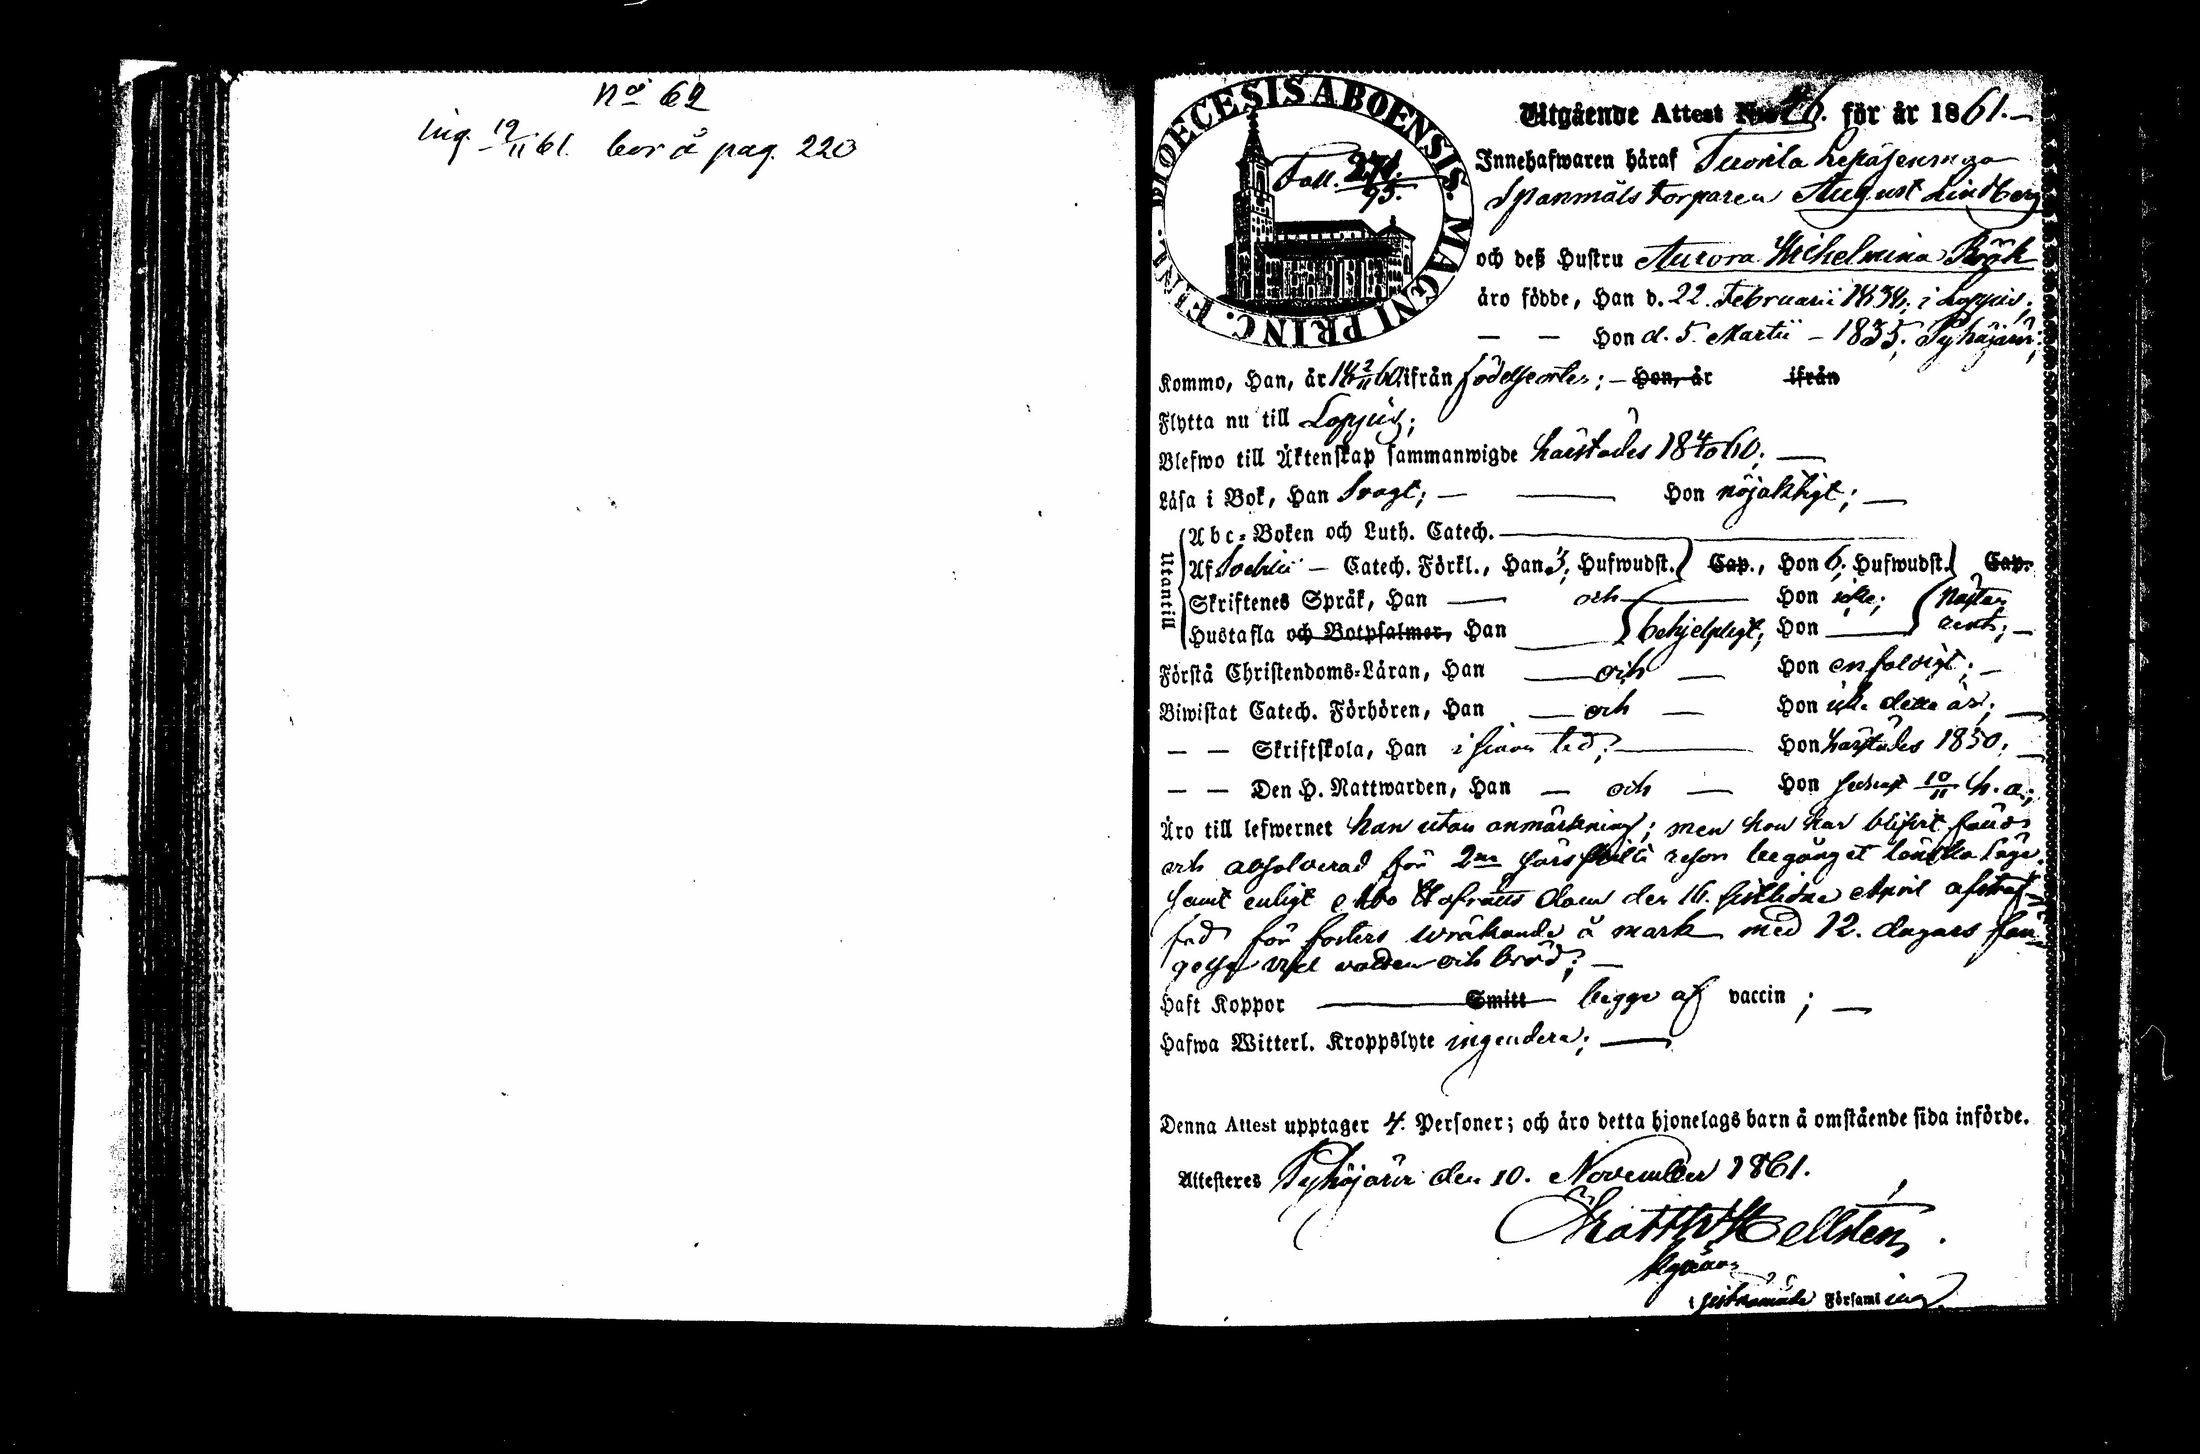 No 62
Ing. 19/11 61. bor å pag. 220
DIOECESIS ABOENSIS. MAGNI PRINC. FINL.
Foll. 271./95.
Utgående Attest N:o 46. för år 1861.—
Innehafwaren häraf Tuorila
Spanmåls torparen August Lindberg
och deß Hustru Aurora Wilhelmina Röök
äro födde, Han d. 22. Februarii 1834. i Loppis;
— — Hon d. 5. Martii – 1835. Pyhäjärvi;
Kommo, Han, år 18 2/11 60. ifrån födelseorten; – Hon, år ifrån
Flytta nu till Loppis;
Blefwo till Äktenskap sammanwigde härstädes 18 4/10 60. —
Läsa i Bok, Han svagt; — — Hon nöjaktigt; —
Utantill
Abc-Boken och Luth. Catech. —
Af Sebelii — Catech. Förkl., Han 3, Hufwudst. Cap., Hon 6. Hufwudst. Cap.
Skriftenes Språk, Han — och — Hon icke; nästan
Hustafla och Botpsalmer, Han — behjelpligt; Hon — rent; —
Förstå Christendoms-Läran, Han — och — Hon enfaldigt; —
Biwistat Catech. Förhören, Han — och — Hon icke detta år; —
— — Skriftskola, Han i sinom tid; — Hon härstädes 1850; —
— — Den H. Nattwarden, Han — och — Hon senast 10/11 h. a.;
Äro till lefwernet han utan anmärkning; men hon har blifvit
och absolverad för 2ne särskilta resor begånget lönskaläge,
samt enligt Åbo Hofrätts dom den 16. sistlidne April afstraf-
fad för fosters wräkande å mark med 12. dagars fän-
gelse vid vatten och bröd; —
Haft Koppor — Smitt — begge af vaccin; —
Hafwa Witterl. Kroppslyte ingendera; —
Denna Attest upptager 4. Personer; och äro detta hjonelags barn å omstående sida införde.
Attesteres Pyhäjärvi den 10. November 1861.
Matth Hellstén.
i Församling.